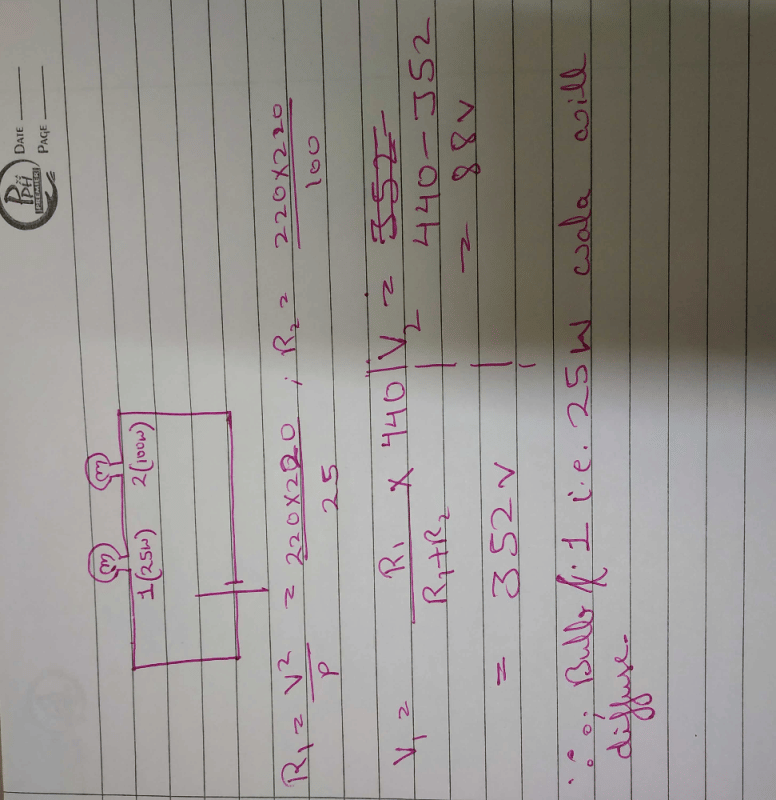 PPH
PREMIER
DATE
PAGE
1(25W) 2(100W)
R₁ = V²/P = 220×220/25 ; R₂ = 220×220/100
V₁ = R₁/(R₁+R₂) × 440 | V₂ = 352 440-352
= 352V | = 88V
∴ Bulb 1 i.e. 25W wala will
diffuse.